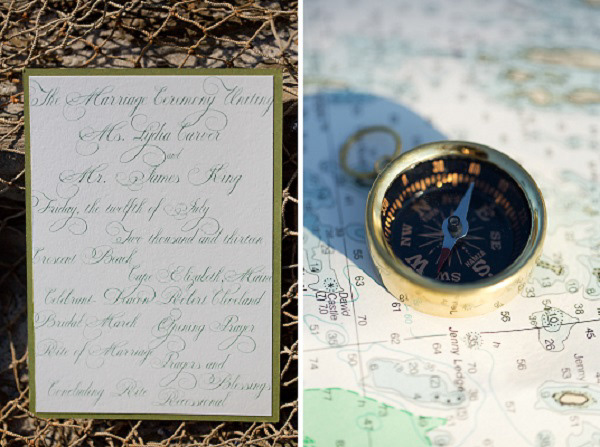 The Marriage Ceremony Uniting
Ms. Lydia Carver
and
Mr. James King
Friday, the twelfth of July
Two thousand and thirteen
Crescent Beach
Cape Elizabeth, Maine
Celebrant Deacon Robert Cleveland
Bridal March Opening Prayer
Rite of Marriage
Prayers and
Blessings
Concluding Rite
Recessional
N
NW
W
SW
S
SE
E
David
Castle
70
63
55
62
60
70
51
56
45
26
74
Jenny